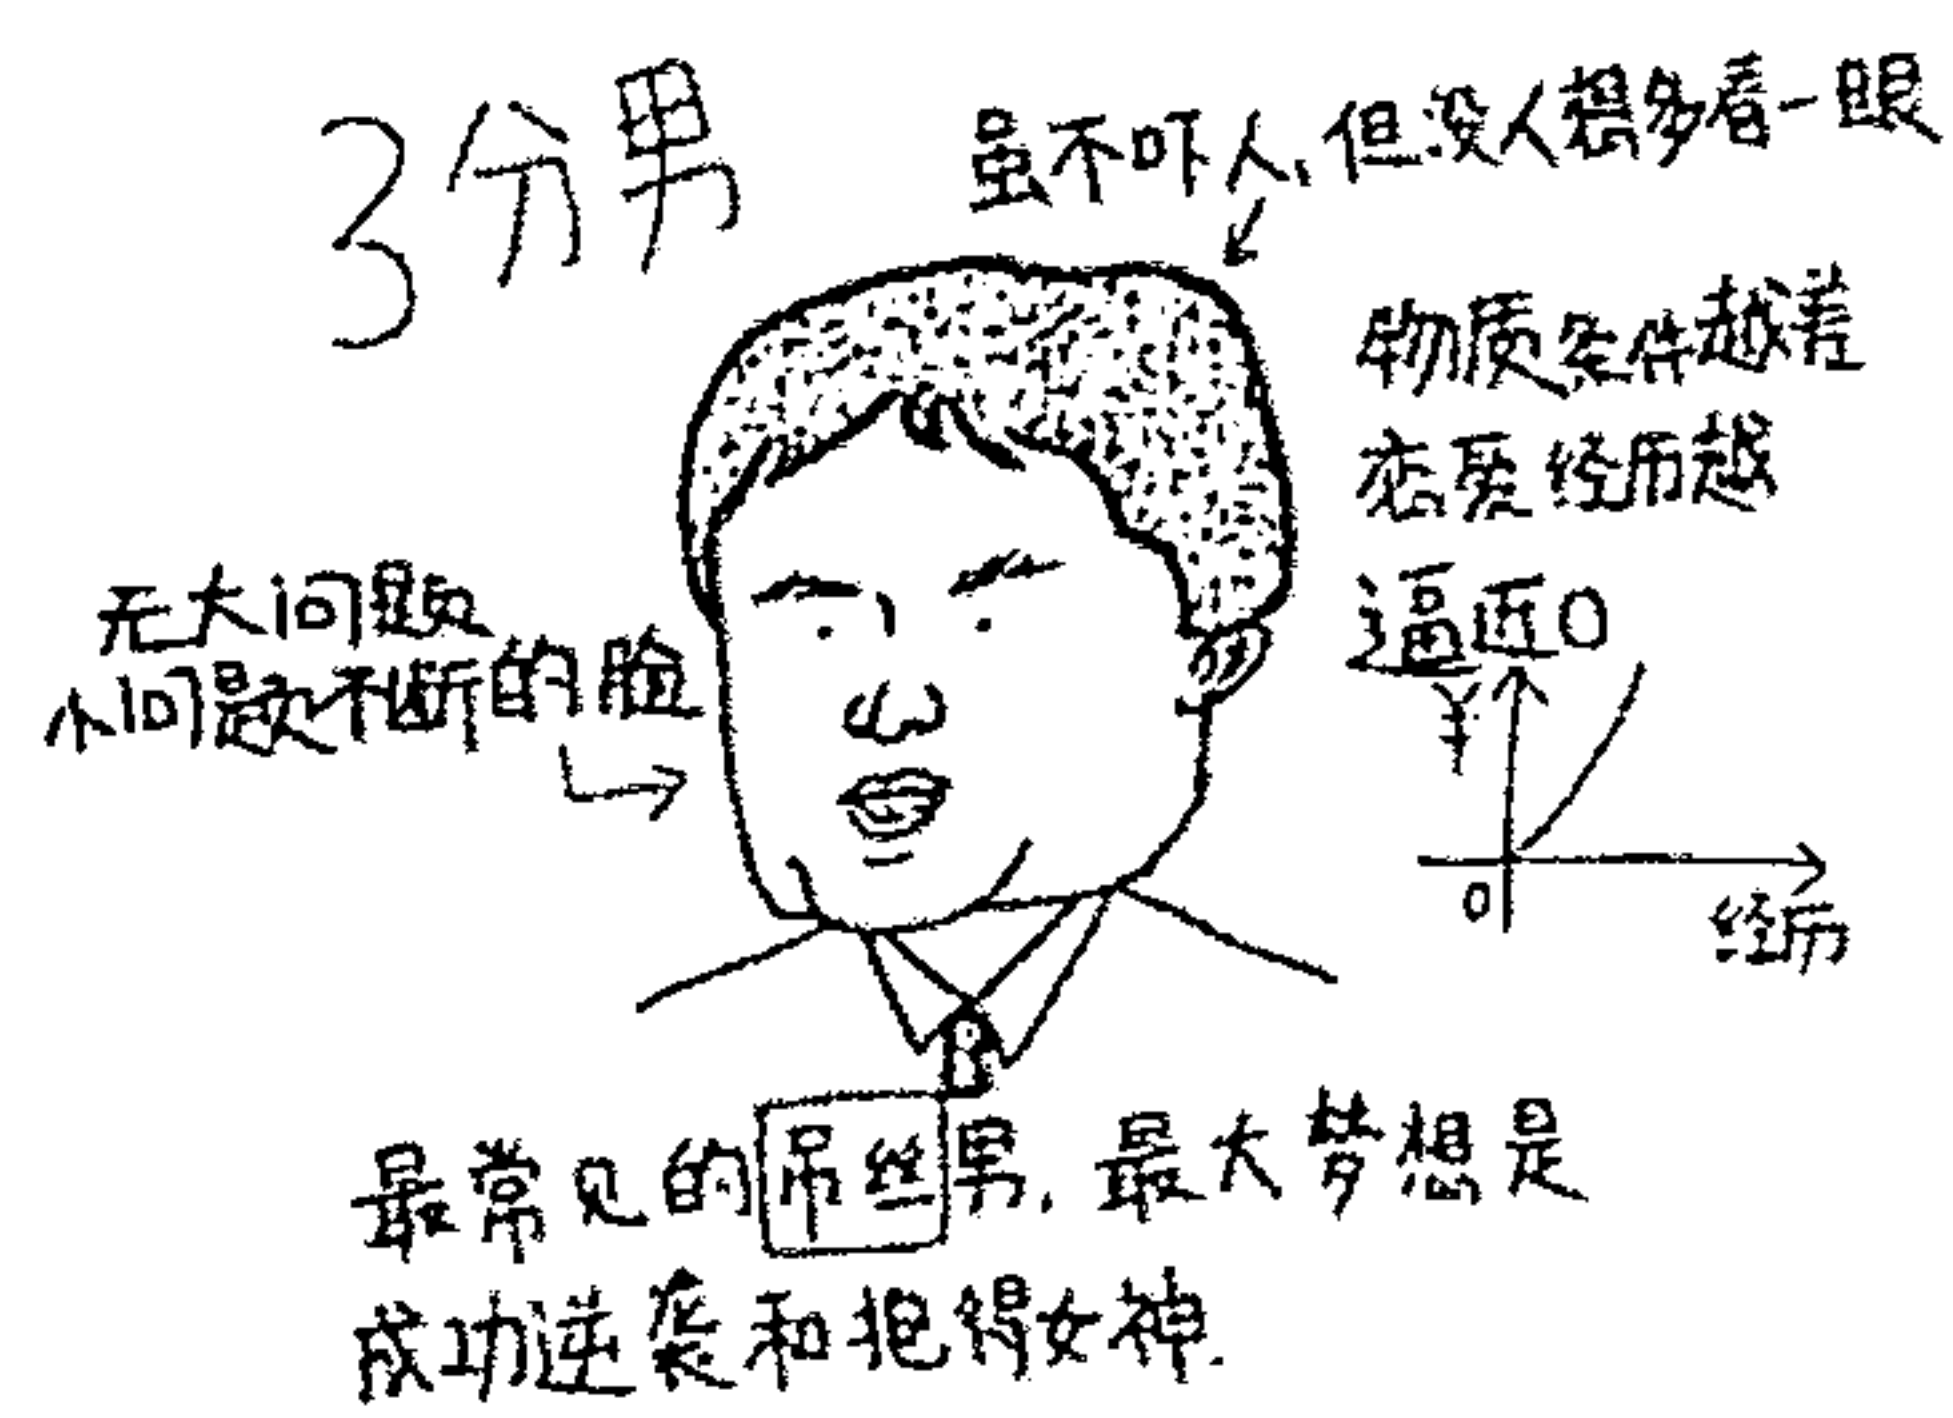 3分男
虽不吓人、但没人想多看一眼
物质条件越差
恋爱经历越
逼近0
无大问题
小问题不断的脸
¥
0
经历
最常见的吊丝男.最大梦想是
成功逆袭和把得女神.